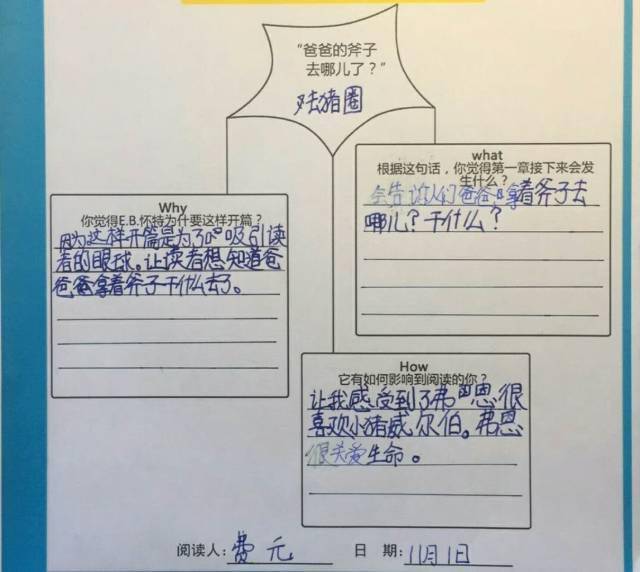 “爸爸的斧子
去哪儿了？”
去猪圈
what
根据这句话，你觉得第一章接下来会发
生什么？
会告诉人们爸爸拿着斧子去
哪儿？干什么？
Why
你觉得E.B.怀特为什要这样开篇？
因为这样开篇是为了吸引读
者的眼球。让读者想知道爸
爸拿着斧子干什么去了。
How
它有如何影响到阅读的你？
让我感受到了弗恩很
喜欢小猪威尔伯。弗恩
很关爱生命。
阅读人：费元
日 期：11月1日